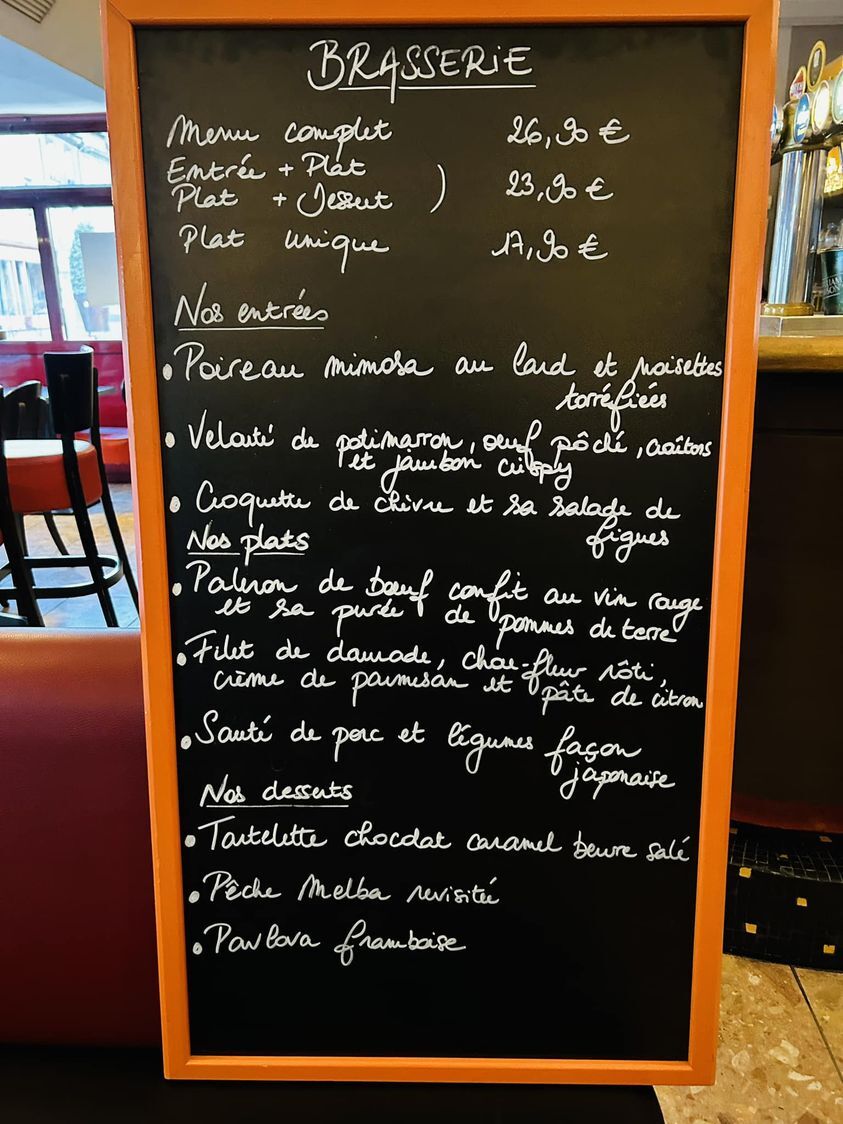 BRASSERIE
Menu complet 26,90 €
Entrée + Plat
Plat + Dessert ) 23,90 €
Plat unique 17,90 €
Nos entrées
• Poireau mimosa au lard et noisettes
torréfiées
• Velouté de potimarron, oeuf pôché, croûtons
et jambon crispy
• Croquette de chèvre et sa salade de
figues
Nos plats
• Paleron de bœuf confit au vin rouge
et sa purée de pommes de terre
• Filet de daurade, chou-fleur rôti,
crème de parmesan et pâte de citron
• Sauté de porc et légumes façon
japonaise
Nos desserts
• Tartelette chocolat caramel beurre salé
• Pêche Melba revisitée
• Pavlova framboise